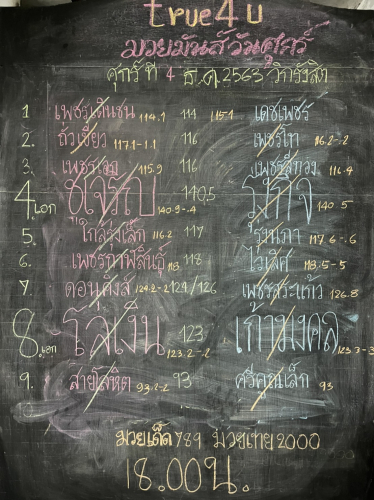 true4u
มวยมันส์วันศุกร์
ศุกร์ที่ 4 ธ.ค.2563 วิกรังสิต
1. เพชรเดินชน 114.1 114 115.1 เดชเพชร
2. ถั่วเขียว 117.1-1.1 116 เพชรไท 116.2-.2
3. 115.9 116 116.4
4.เอก ชูเจริญ 140.9-.4 140.5 140.5
5. ใกล้รุ่งเล็ก 116.2 117 117.6-.6
6. เพชรกาฬสินธุ์ 118 118 ไวเลิศ 118.5-5
7. ดอนคิงส์ 124.2-2 124/126 เพชรสระแก้ว 126.8
8.เอก โลเงิน 123.2-.2 123 เก้ามงคล 123.3-3
9. สายโลหิต 93.2-2 93 ศรีคูณเล็ก 93
10
มวยเด็ด 789 มวยเทย 2000
18.00น.